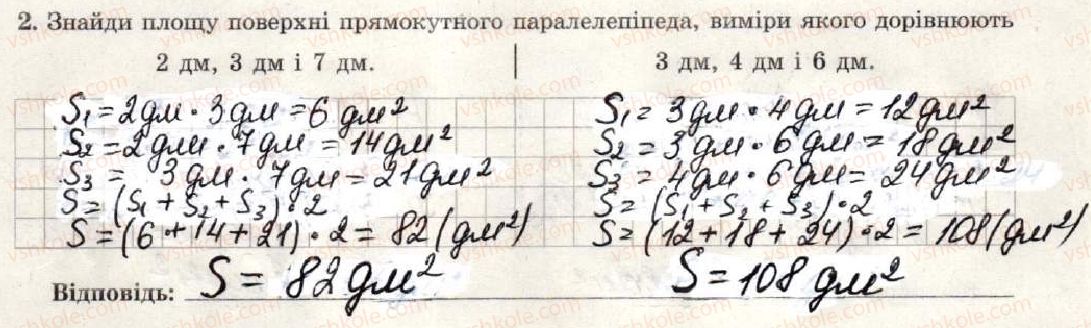 2. Знайди площу поверхні прямокутного паралелепіпеда, виміри якого дорівнюють
2 дм, 3 дм і 7 дм. | 3 дм, 4 дм і 6 дм.
S₁=2дм·3дм=6дм²
S₂=2дм·7дм=14дм²
S₃= 3дм·7дм=21дм²
S=(S₁+S₂+S₃)·2
S=(6+14+21)·2=82(дм²)
S₁=3дм·4дм=12дм²
S₂=3дм·6дм=18дм²
S₃=4дм·6дм=24дм²
S=(S₁+S₂+S₃)·2
S=(12+18+24)·2=108(дм²)
Відповідь: S=82дм² S=108дм²